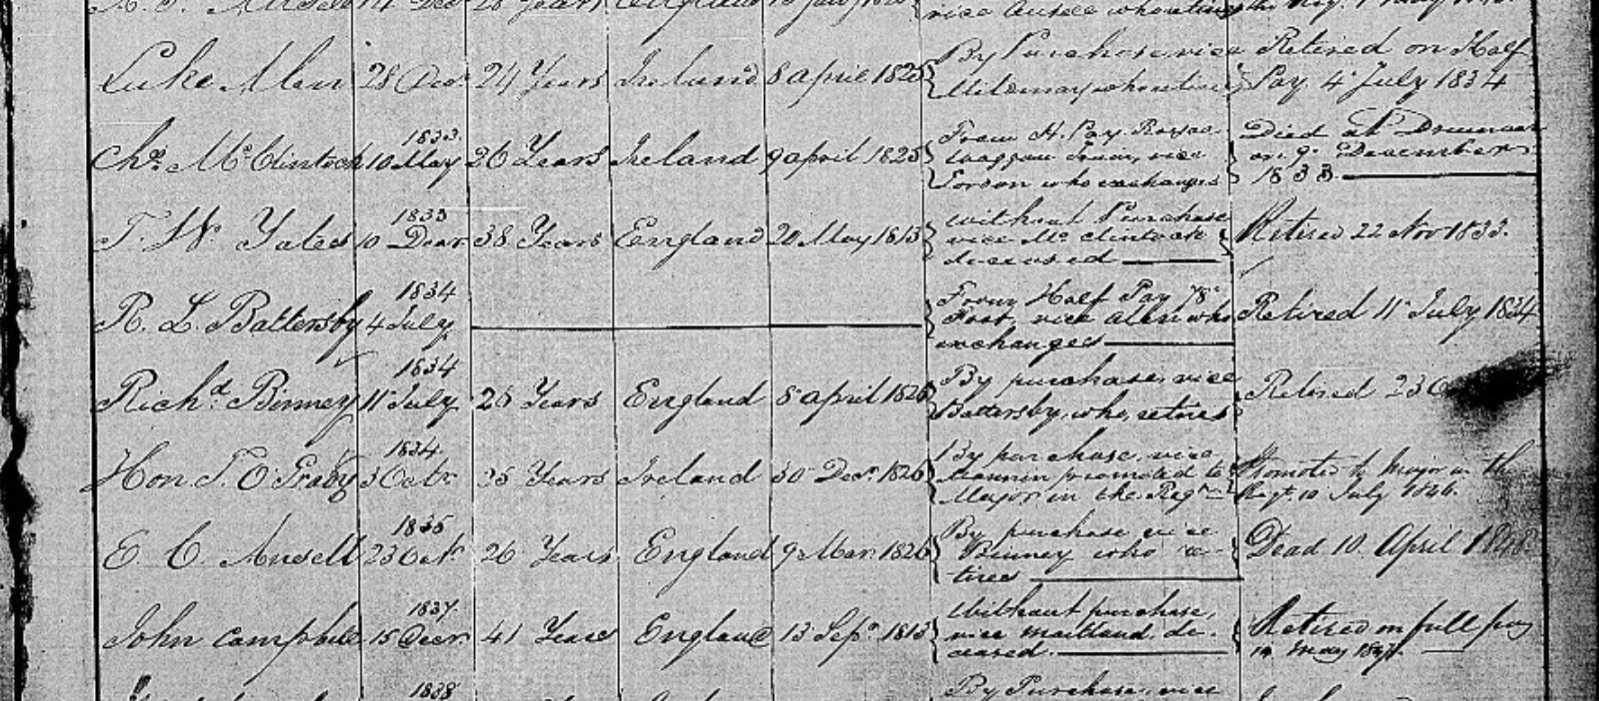 Years
Luke Alen 28 Decr. 24 Years Ireland 8 April 1825 By Purchase vice Retired on Half
Mildmay who retires Pay 4 July 1834
1833 From H. Pay Royal Died at
Chs. McClintock 10 May 26 Years Ireland 9 April 1825 Waggon Train, vice on 9 December
who exchanges 1833.
1833 Without Purchase
T. W. Yates 10 Decr. 38 Years England 20 May 1813 vice McClintock Retired 22 Nov 1833.
deceased
1834 From Half Pay 78
R. L. Battersby 4 July Foot, vice Alen who Retired 11 July 1834
exchanges
1834 By purchase, vice
Richd. Binney 11 July 26 Years England 8 April 1826 Battersby, who retires Retired 23
1834 By purchase, vice
Hon. T. O'Grady 3 Octr. 35 Years Ireland 30 Decr. 1826 promoted to Promoted to Major in the
Major in the Regt. Regt. 10 July 1846.
1835 By purchase vice
E. C. Ansell 23 Octr. 26 Years England 9 Mar. 1826 Binney who re- Dead 10. April 1848
tires
1837 Without purchase,
John Campbell 15 Decr. 41 Years England 13 Sepr. 1813 vice Maitland, de- Retired on full pay
ceased. 14 May 1847.
1838 By Purchase, vice